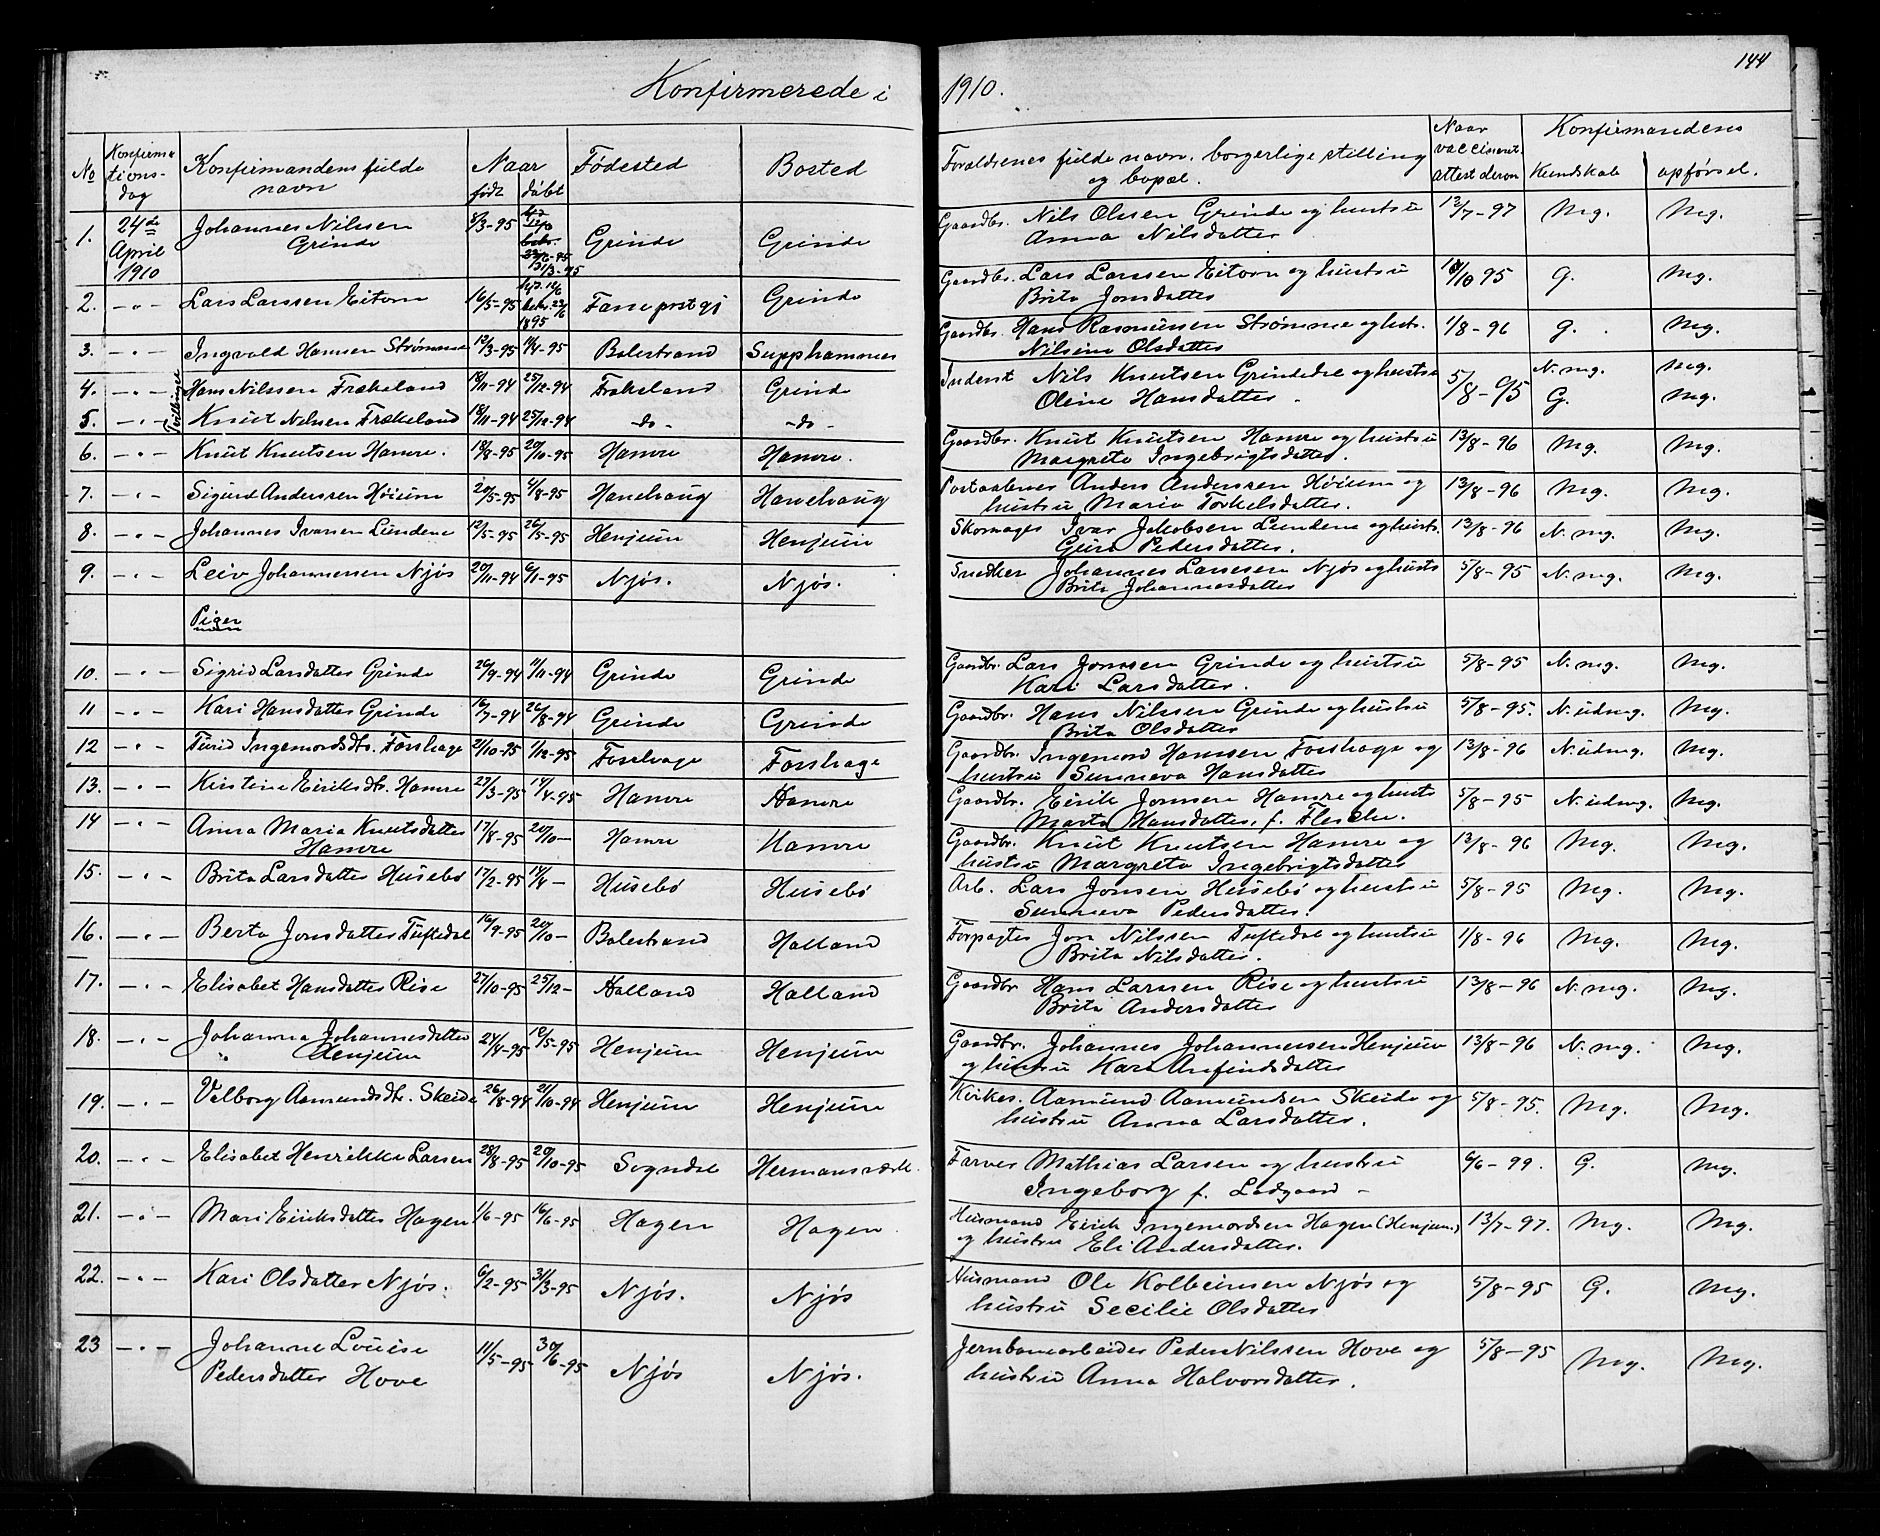 144
Konfirmerede i 1910.
No Konfirmationsdag Konfirmandens fulde navn Naar født døbt Fødested Bosted Forældrenes fulde navn, borgerlige stilling og bopæl. Naar vaccineret, attest derom Konfirmandens Kundskab opførsel.
1. 24de April 1910 Johannes Nilssen Grinde 8/3-95 31/3-95 Grinde Grinde Gaardbr. Nils Olssen Grinde og hustru Anna Nilsdatter 12/7-97 Mg. Mg.
2. -"- Lars Larssen Eitorn 16/5-95 1895 Fane prstgj Grinde Gaardbr. Lars Larssen Eitorn og hustru Brita Jonsdatter 95 G. Mg.
3. -"- Ingvald Hanssen Strømme 12/3-95 95 Balestrand Supphammer Gaardbr. Hans Rasmussen Strømme og hust. Nilsine Olsdatter 1/8-96 G. Mg.
4. -"- Tvillinger Hans Nilssen Frækeland 18/11-94 25/12-94 Frækeland Grinde Inderst Nils Knutsen Grindedal og hustru Oline Hansdatter 5/8-95 N. mg. Mg.
5. -"- Knut Nilssen Frækeland 18/11-94 25/12-94 -do- -do- G. Mg.
6. -"- Knut Knutsen Hamre. 18/8-95 20/10-95 Hamre Hamre. Gaardbr. Knut Knutsen Hamre og hustru Margreta Ingebrigtsdatter. 13/8-96 Mg. Mg.
7. -"- Sigurd Anderssen Høium 20/5-95 4/8-95 Hanehaug Hanehaug Postaabner Anders Anderssen Høium og hustru Maria Torkelsdatter. 13/8-96 Mg. Mg.
8. -"- Johannes Ivarsen Lundene 12/5-95 26/5-95 Henjum Henjum Skomager Ivar Jakobsen Lundene og hust. Guro Pedersdatter. 13/8-96 N. mg. Mg.
9. -"- Leiv Johannessen Njøs 20/11-94 6/1-95 Njøs. Njøs. Snedker Johannes Larssen Njøs og hust Brita Johannesdatter 5/8-95 N. mg. Mg.
Piger
10. -"- Sigrid Larsdatter Grinde 26/9-94 11/11-94 Grinde Grinde Gaardbr. Lars Jonssen Grinde og hustru Kari Larsdatter. 5/8-95 N. mg. Mg.
11 -"- Kari Hansdatter Grinde 16/7-94 26/8-94 Grinde Grinde Gaardbr. Hans Nilssen Grinde og hustru Brita Olsdatter 5/8-95. N. udmg. Mg.
12 -"- Turid Ingemordsdtr. Fosshage 21/10-95 1/12-95 Fosshage Fosshage Gaardbr. Ingemord Hanssen Fosshage og hustru Sunneva Hansdatter 13/8-96 N. udmg. Mg.
13. -"- Kirstine Eiriksdtr. Hamre 27/3-95 14/4-95 Hamre Hamre Gaardbr. Eirik Jonssen Hamre og hust Marta Hansdatter, f. Flesche. 5/8-95 N. udmg. Mg.
14 -"- Anna Maria Knutsdatter Hamre 17/8-95 20/10- Hamre Hamre Gaardbr. Knut Knutsen Hamre og hustru Margreta Ingebrigtsdatter 13/8-96 Mg. Mg.
15. -"- Brita Larsdatter Husebø 17/2-95 14/4- Husebø Husebø Arb. Lars Jonsen Husebø og hustru Sunneva Pedersdatter. 5/8-95 Mg. Mg.
16. -"- Berta Jonsdatter Tuftedal 16/9-95 20/10- Balestrand Halland Forpagter Jon Nilssen Tuftedal og hustru Brita Nilsdatter. 1/8-96 Mg. Mg.
17. -"- Elisabet Hansdatter Rise 27/10-95 25/12- Halland Halland Gaardbr Hans Larssen Rise og hustru Brita Andersdatter 13/8-96 N. mg. Mg.
18. -"- Johanna Johannesdatter Henjum 24/4-95 12/5-95 Henjum Henjum Gaardbr. Johannes Johannessen Henjum og hustru Kari Anfindsdatter 13/8-96 N. mg. Mg.
19. -"- Valborg Aamundsdtr. Skeide 26/8-94 21/10-94 Henjum Henjum Kirkes. Aamund Aamundsen Skeide og hustru Anna Larsdatter. 5/8-95. Mg. Mg.
20. -"- Elisabet Henrikke Larsen 28/8-95 20/10-95 Sogndal Hermansværk. Farver Mathias Larsen og hustru Ingeborg f. Ladgaard - 6/6-99. G. Mg.
21. -"- Mari Eiriksdatter Hagen 1/6-95 16/6-95 Hagen Hagen Husmand Eirik Ingemordsen Hagen (Henjum) og hustru Eli Andersdatter. 13/7-97. Mg. Mg.
22. -"- Kari Olsdatter Njøs. 6/2-95 31/3-95 Njøs. Njøs Husmand Ole Kolbeinsen Njøs og hustru Secilie Olsdatter 5/8-95 G. Mg.
23 -"- Johanne Louise Pedersdatter Hove 11/5-95 30/6-95 Njøs Njøs. Jernbanearbeider Peder Nilssen Hove og hustru Anna Halvorsdatter. 5/8-95 Mg. Mg.